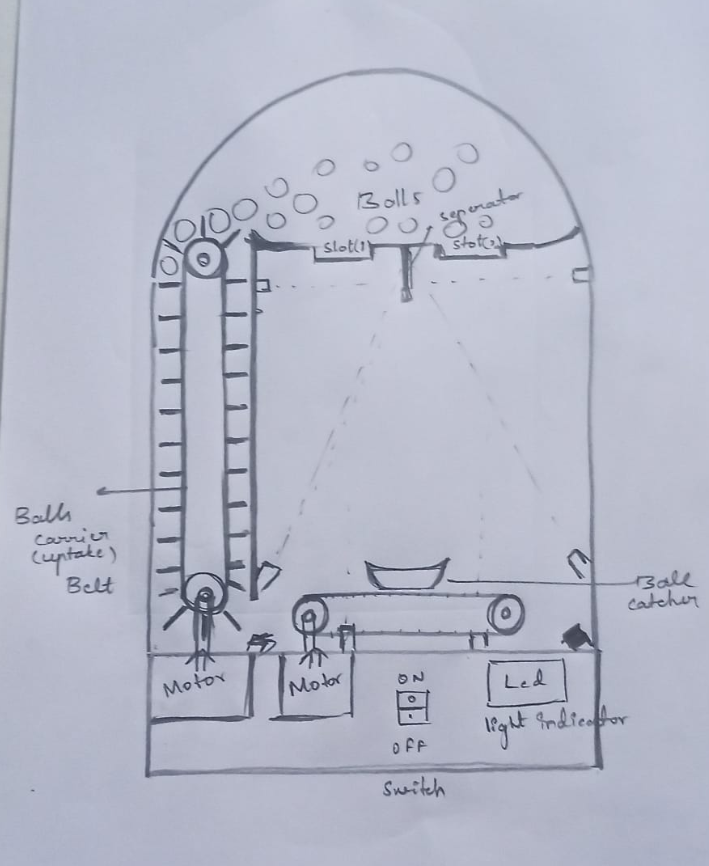 Balls
seperator
Slot(1)
Slot(2)
Balls
carrier
(uptake)
Belt
Ball
catcher
Motor
Motor
ON
OFF
Led
light indicator
Switch